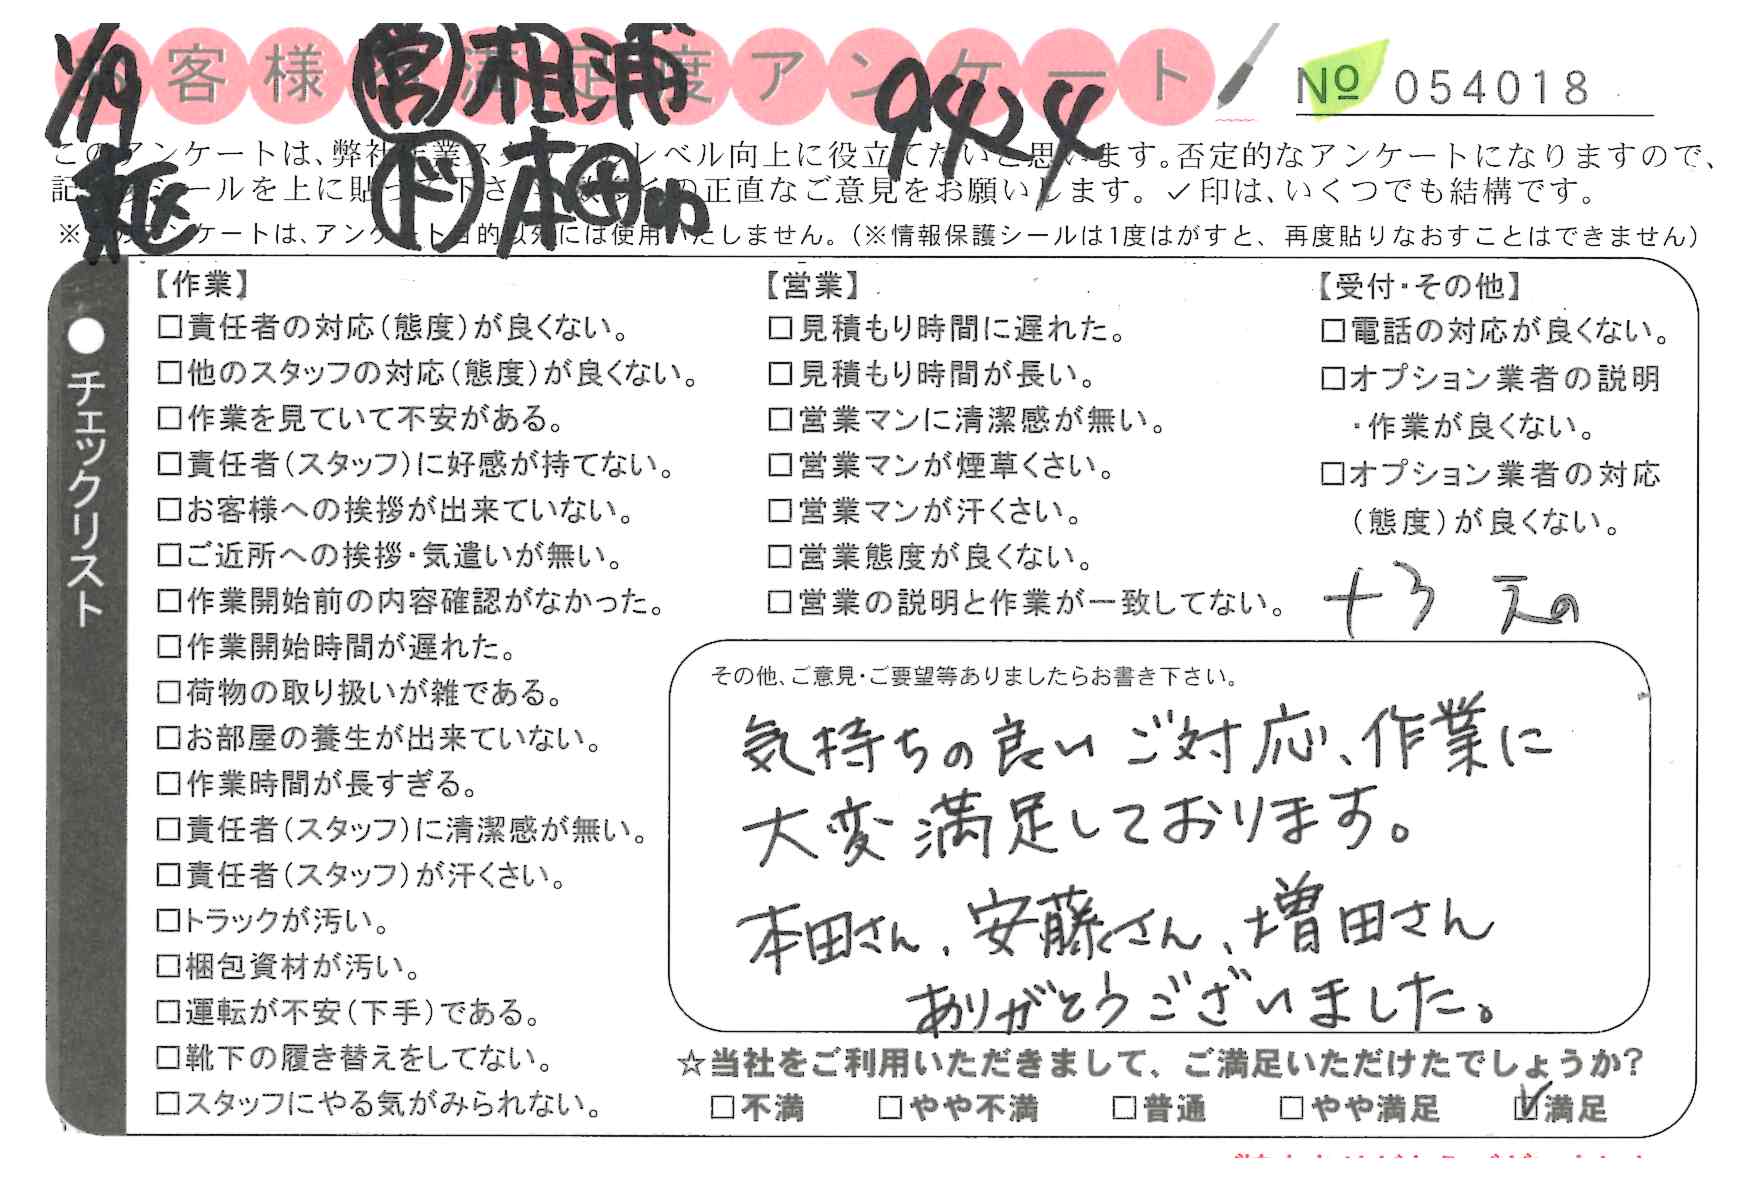 お客様満足度アンケート
1/19 ㊂相浦 9424
No 054018
東区 ド 本田
このアンケートは、弊社作業スタッフのレベル向上に役立てたいと思います。否定的なアンケートになりますので、
シールを上に貼って下さい の正直なご意見をお願いします。✓印は、いくつでも結構です。
※このアンケートは、アンケート目的以外には使用いたしません。（※情報保護シールは1度はがすと、再度貼りなおすことはできません）
●チェックリスト
【作業】
□責任者の対応（態度）が良くない。
□他のスタッフの対応（態度）が良くない。
□作業を見ていて不安がある。
□責任者（スタッフ）に好感が持てない。
□お客様への挨拶が出来ていない。
□ご近所への挨拶・気遣いが無い。
□作業開始前の内容確認がなかった。
□作業開始時間が遅れた。
□荷物の取り扱いが雑である。
□お部屋の養生が出来ていない。
□作業時間が長すぎる。
□責任者（スタッフ）に清潔感が無い。
□責任者（スタッフ）が汗くさい。
□トラックが汚い。
□梱包資材が汚い。
□運転が不安（下手）である。
□靴下の履き替えをしてない。
□スタッフにやる気がみられない。
【営業】
□見積もり時間に遅れた。
□見積もり時間が長い。
□営業マンに清潔感が無い。
□営業マンが煙草くさい。
□営業マンが汗くさい。
□営業態度が良くない。
□営業の説明と作業が一致してない。
【受付・その他】
□電話の対応が良くない。
□オプション業者の説明
・作業が良くない。
□オプション業者の対応
（態度）が良くない。
+3
その他、ご意見・ご要望等ありましたらお書き下さい。
気持ちの良いご対応、作業に
大変満足しております。
本田さん、安藤さん、増田さん
ありがとうございました。
☆当社をご利用いただきまして、ご満足いただけたでしょうか?
□不満 □やや不満 □普通 □やや満足 ☑満足